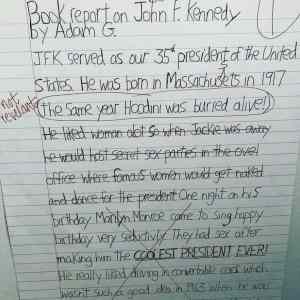 Book report on John F. Kennedy
by Adam G.
JFK served as our 35th president of the United
States. He was born in Massachusetts in 1917
not revelant
(the same year Hoodini was buried alive!)
He liked woman alot so when Jackie was away
he would host secret sex parties in the ovel
office where famous women would get naked
and dance for the president One night on his
birthday Marilyn Monroe came to sing happy
birthday very seductivly They had sex after
making him the COOLEST PRESIDENT EVER!
He really liked driving in convertable cars which
wasn't such a good idea in 1963 when he was